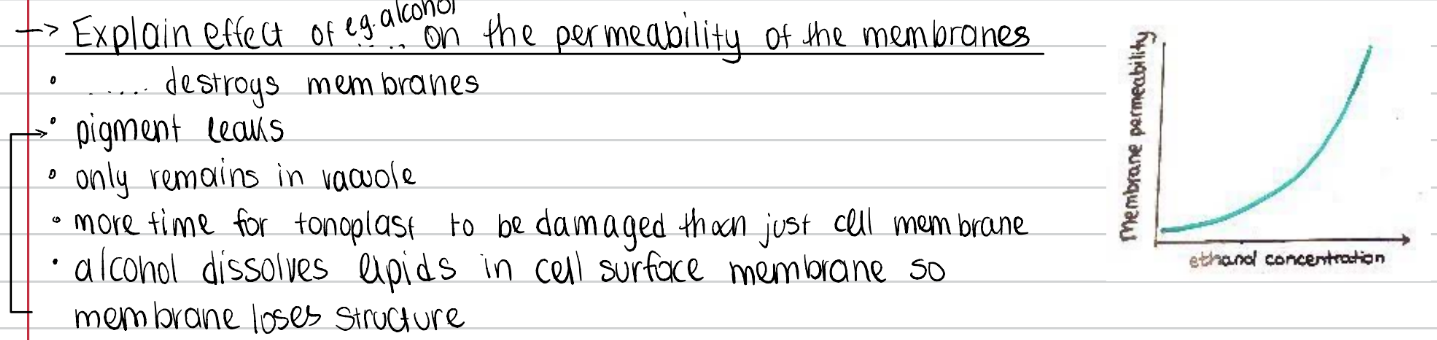 → Explain effect of e.g. alcohol ..... on the permeability of the membranes
• ..... destroys membranes
• pigment leaks
• only remains in vacuole
• more time for tonoplast to be damaged than just cell membrane
• alcohol dissolves lipids in cell surface membrane so
membrane loses structure
Membrane permeability
ethanol concentration